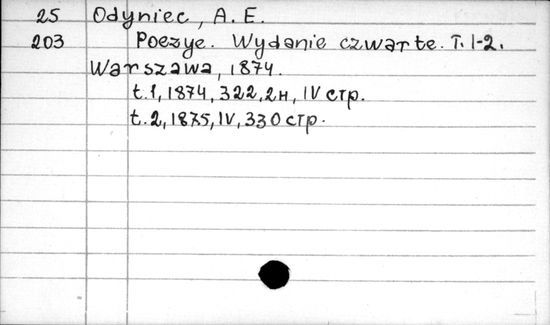 25 Odyniec, A. E.
203 Poezye. Wydanie czwarte. T. 1-2.
Warszawa, 1874.
t.1, 1874, 322, 2н, IV стр.
t.2, 1875, IV, 330 стр.